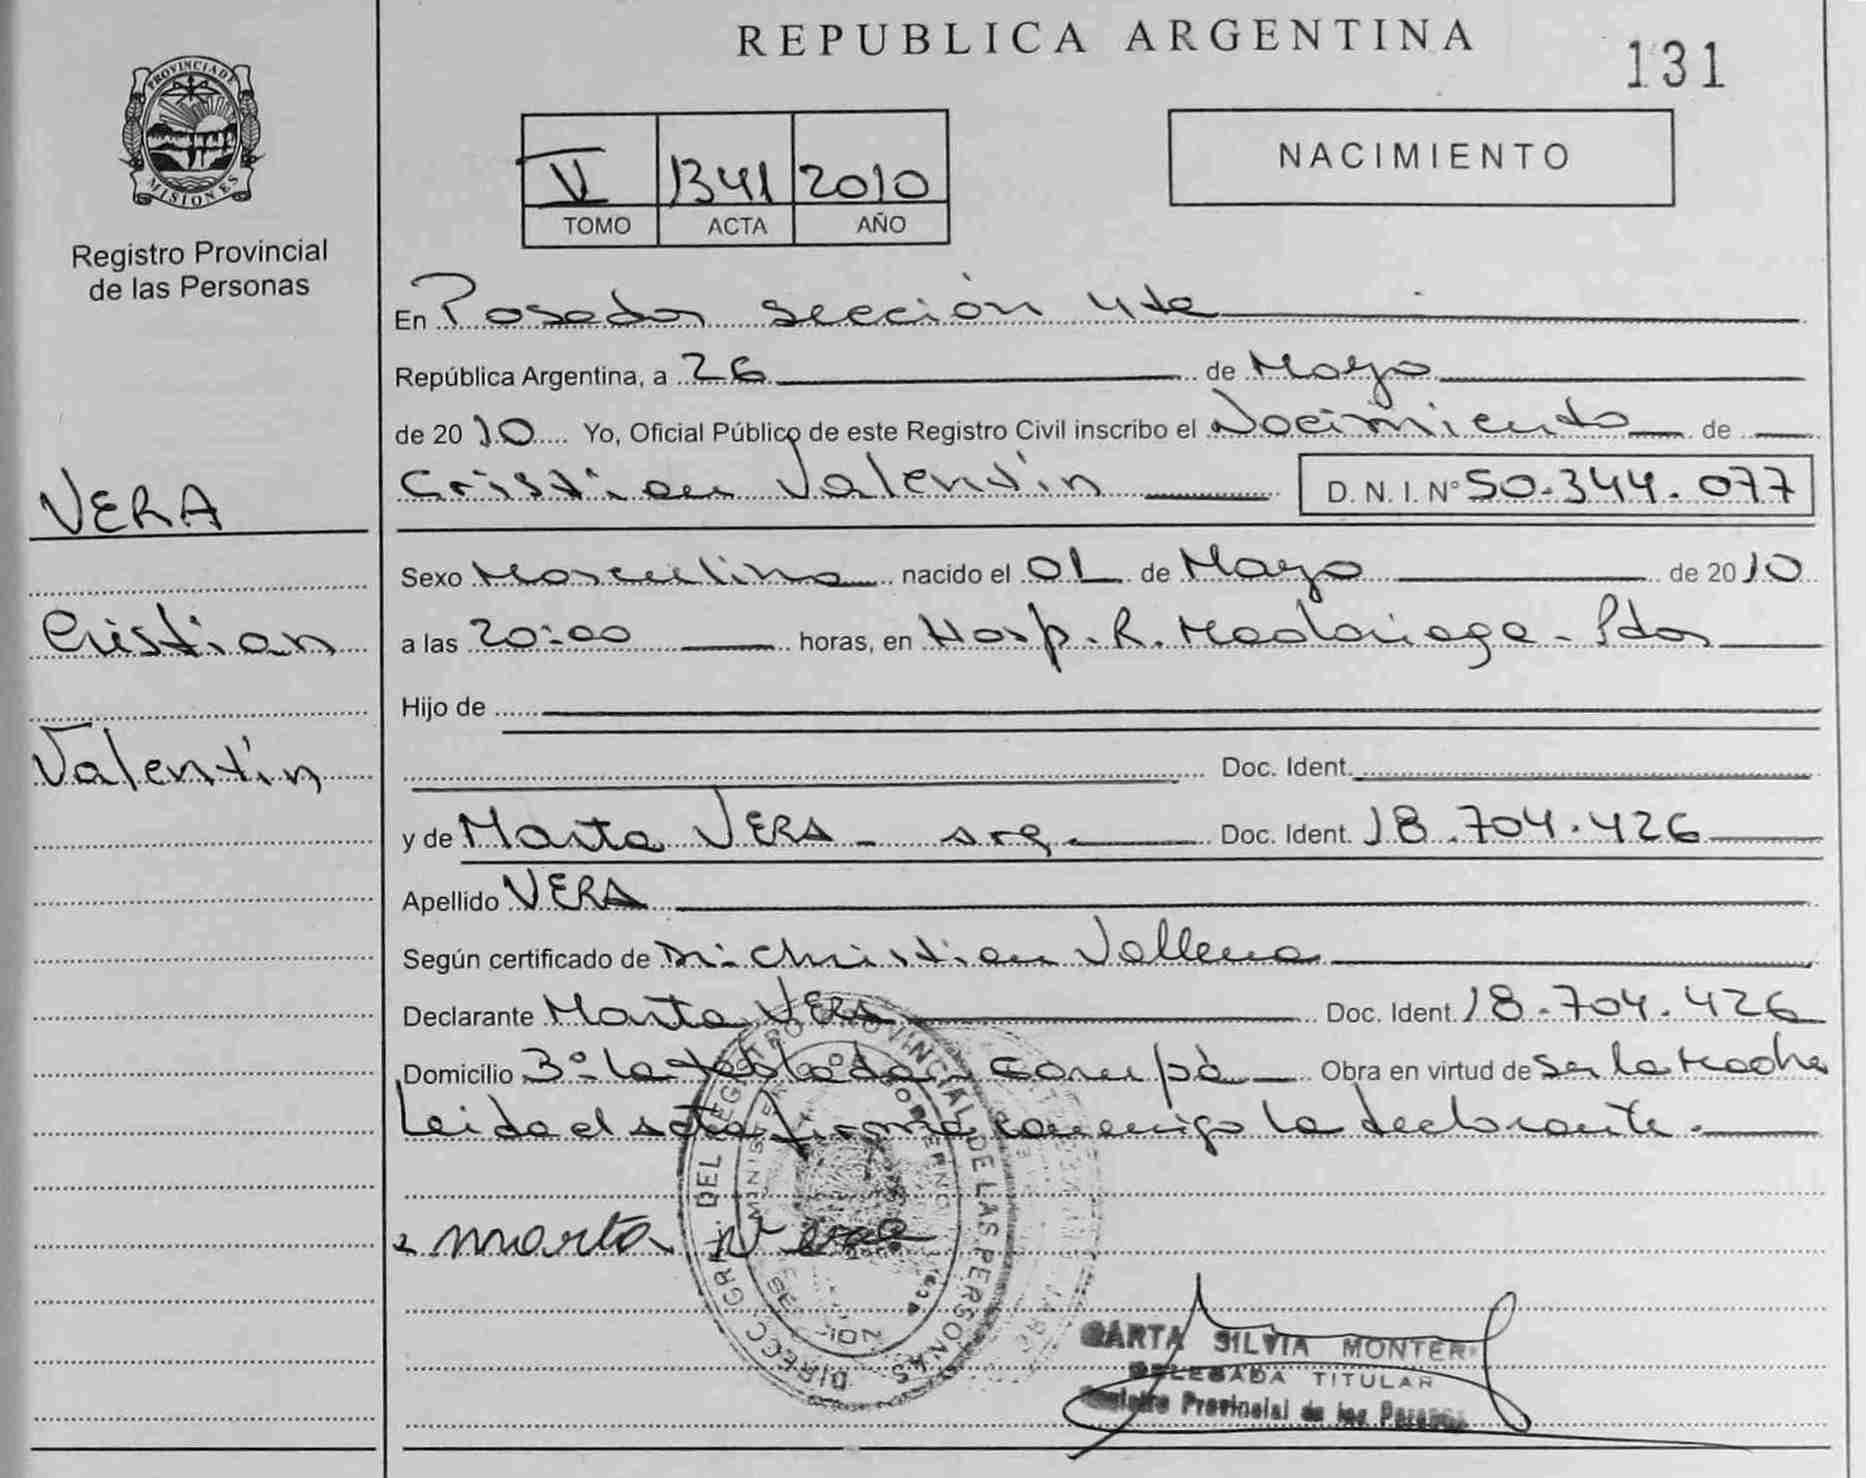 REPUBLICA ARGENTINA
131
PROVINCIA DE
MISIONES
Registro Provincial
de las Personas
V 1341 2010
TOMO ACTA AÑO
NACIMIENTO
VERA
Cristian
Valentín
En Posadas sección 4ta
República Argentina, a 26 de Mayo
de 2010 Yo, Oficial Público de este Registro Civil inscribo el Nacimiento de
Cristian Valentín D. N. I. Nº 50.344.077
Sexo Masculino nacido el 01 de Mayo de 2010
a las 20:00 horas, en Hosp. R. Madariaga - Pdas
Hijo de
Doc. Ident.
y de Marta VERA - arg. Doc. Ident. 18.704.426
Apellido VERA
Según certificado de Christian Vallena
Declarante Marta VERA Doc. Ident. 18.704.426
Domicilio Obra en virtud de Ser la Madre
Leida el acta firma conmigo la declarante.
marta vera
DIRECC. GRAL. DEL REGISTRO PROVINCIAL DE LAS PERSONAS
SILVIA MONTER
DELEGADA TITULAR
Registro Provincial de las Personas